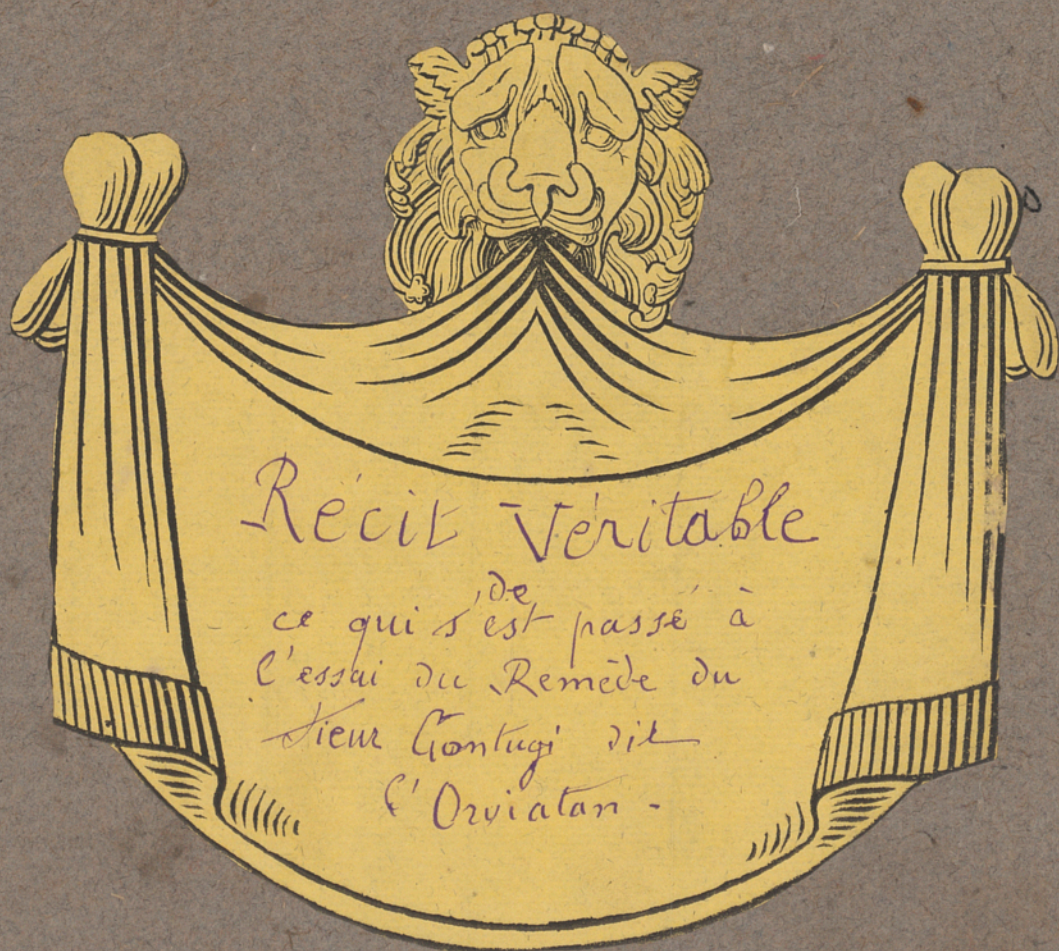 Récit Véritable
de
ce qui s'est passé à
l'essai du Remède du
Sieur Contugi dit
l'Orviatan -